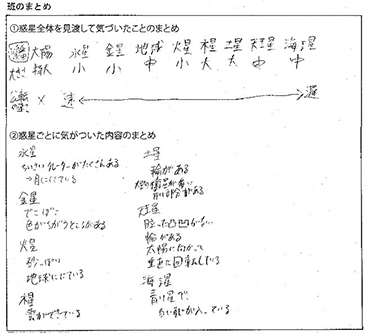 班のまとめ
①惑星全体を見渡して気づいたことのまとめ
太陽 水星 金星 地球 火星 木星 土星 天王星 海王星
大きさ 極大 小 小 中 小 大 大 中 中
× 速 遅
②惑星ごとに気がついた内容のまとめ
水星
ちいさいクレーターがたくさんある
→月ににている
金星
でこぼこ
色がちがうところがある
火星
砂っぽい
地球ににている
木星
雲ができている
土星
輪がある
天王星
目立った凸凹がない
輪がある
太陽に向かって
垂直に回転している
海王星
青い星で
白い線が入っている